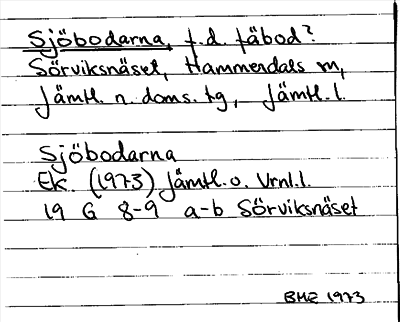 Sjöbodarna, f.d. fäbod?
Sörviksnäset, Hammerdals sn,
Jämtl. n. doms. tg, Jämtl. l.
Sjöbodarna
Ek. (1973) Jämtl. o. Vrnl. l.
19 G 8-9 a-b Sörviksnäset
BME 1973